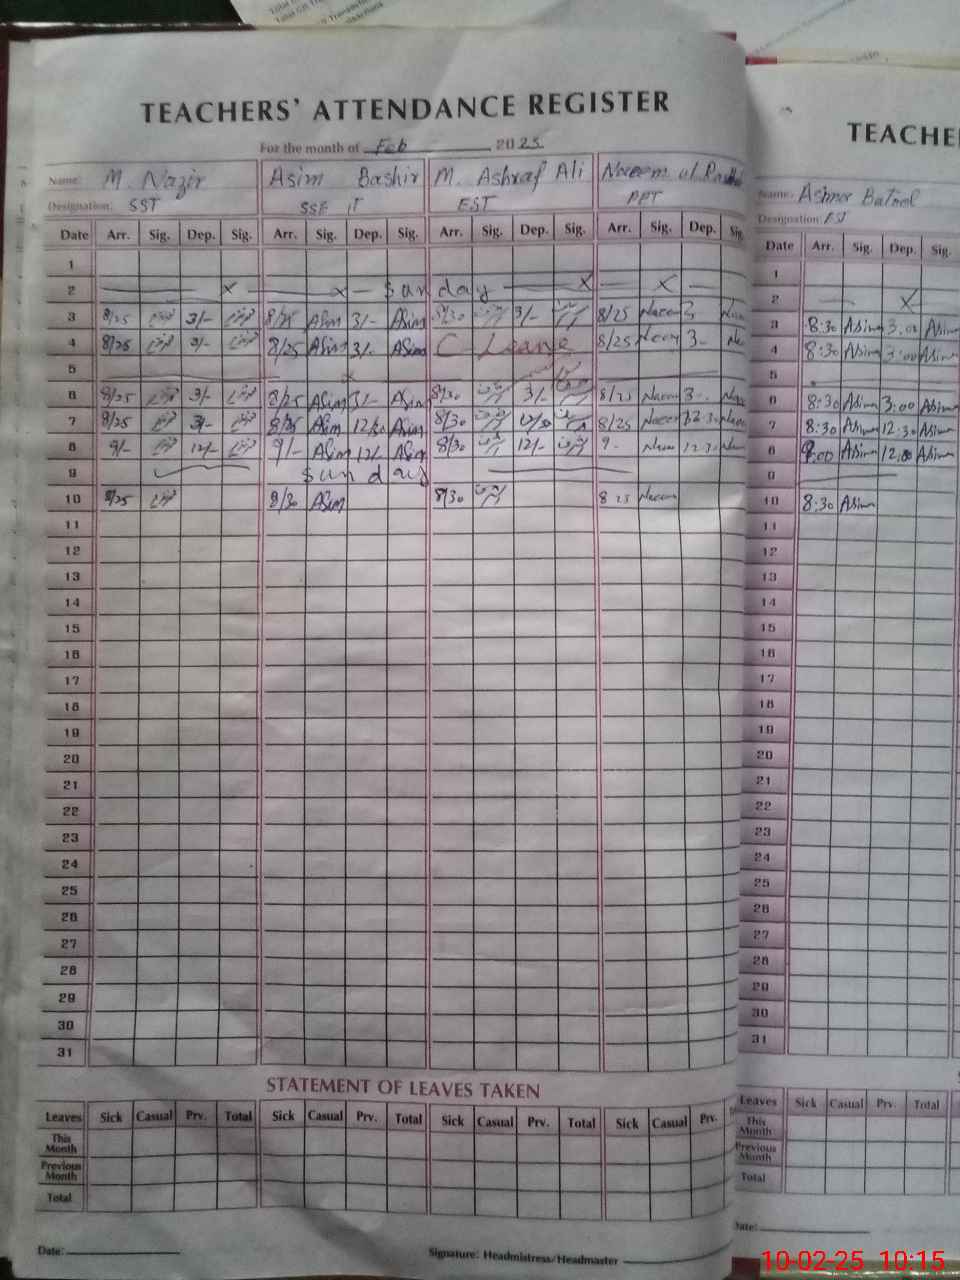 TEACHERS' ATTENDANCE REGISTER
For the month of Feb 2025
Name: M. Nazir Asim Bashir M. Ashraf Ali Naeem ul
Designation: SST SSE IT EST PET
Date Arr. Sig. Dep. Sig. Arr. Sig. Dep. Sig. Arr. Sig. Dep. Sig. Arr. Sig. Dep. Sig.
1
2 x x Sunday x x
3 8/25 3/- 8/25 Asim 3/- Asim 8/30 3/- 8/25 Naeem 3
4 8/25 3/- 8/25 Asim 3/- Asim C-Leave 8/25 Naeem 3-
5 x
6 8/25 3/- 8/25 Asim 3/- Asim 8/30 3/- 8/25 Naeem 3-
7 8/25 3/- 8/25 Asim 12/30 Asim 8/30 12/30 8/25 Naeem 12.30 Naeem
8 9/- 12/- 9/- Asim 12/- Asim 8/30 12/- 9- Naeem 12.30 Naeem
9 Sunday
10 8/25 8/30 Asim 8/30 8 25 Naeem
11
12
13
14
15
16
17
18
19
20
21
22
23
24
25
26
27
28
29
30
31
STATEMENT OF LEAVES TAKEN
Leaves Sick Casual Prv. Total Sick Casual Prv. Total Sick Casual Prv. Total Sick Casual Prv.
This Month
Previous Month
Total
Date: Signature: Headmistress/Headmaster
TEACHE
Name:
Designation: EST
Date Arr. Sig. Dep. Sig.
1
2 X
3 8:30 Asim 3:00 Asim
4 8:30 Asim 3:00 Asim
5
6 8:30 Asim 3:00 Asim
7 8:30 Asim 12:30 Asim
8 9:00 Asim 12:00 Asim
9
10 8:30 Asim
11
12
13
14
15
16
17
18
19
20
21
22
23
24
25
26
27
28
29
30
31
Leaves Sick Casual Prv. Total
This Month
Previous Month
Total
Date:
10-02-25 10:15